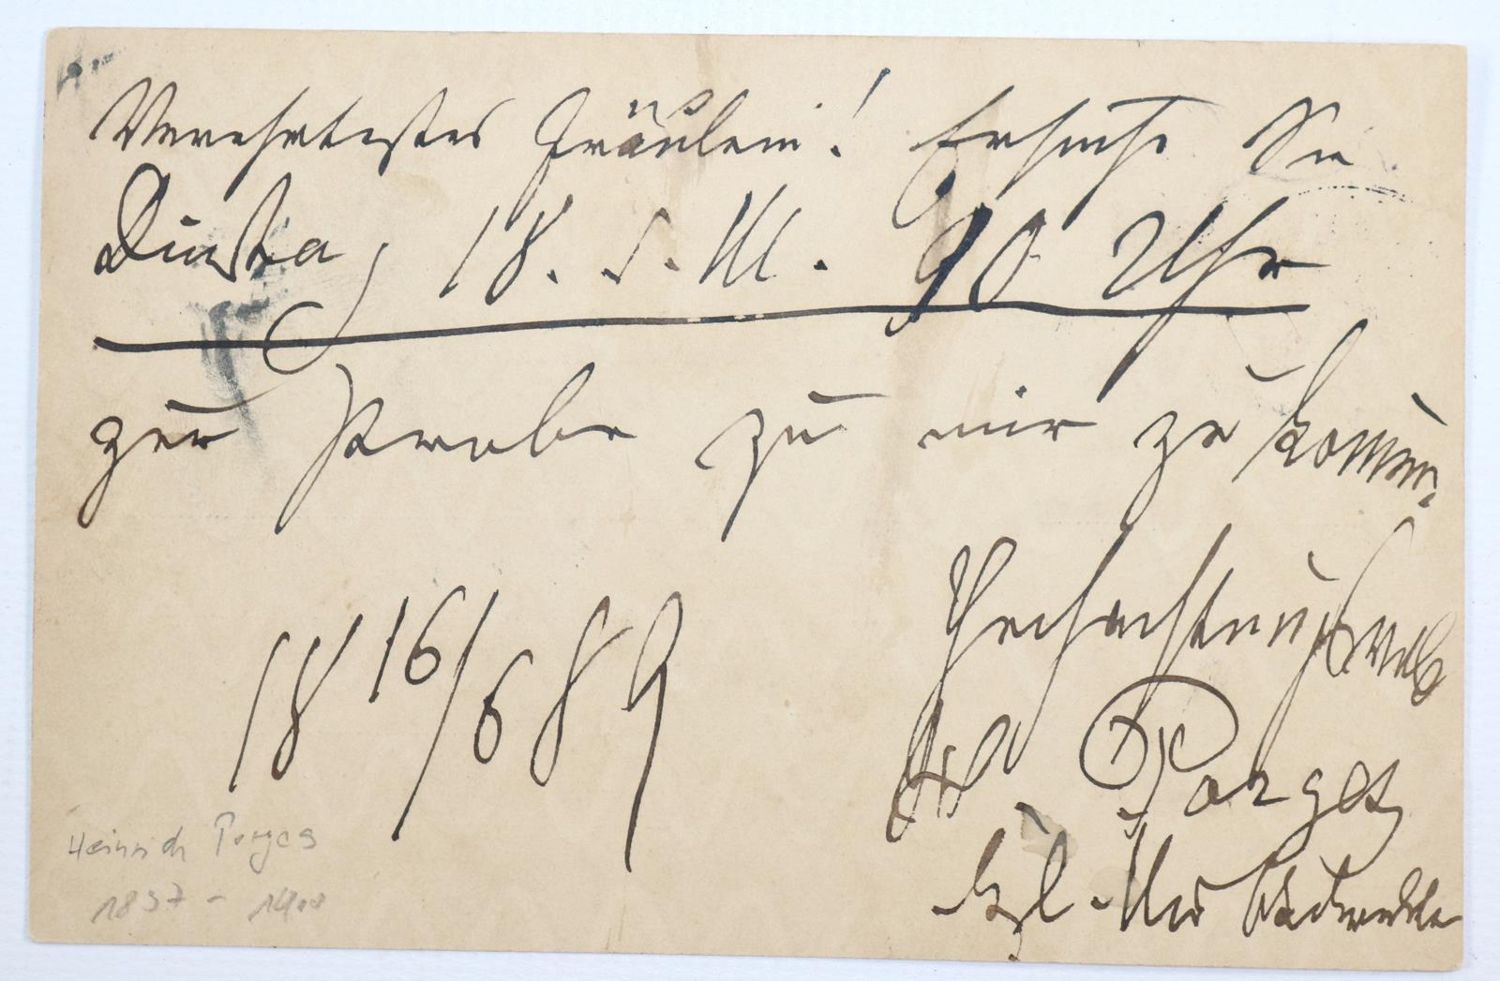 Verehrtestes Fräulein! Ersuche Sie
Dinstag 18. d. M. 10 Uhr
zur Probe zu mir zu komen.
Hochachtungsvoll
18 16/6 89
H Porges
kgl. Mus
Heinrich Porges
1837 - 1900